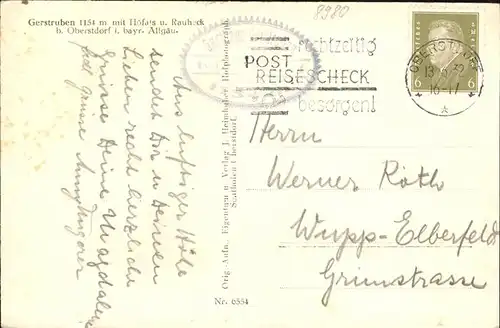 Gerstruben 1154 m mit Höfats u. Rauheck
b. Oberstdorf i. bayr. Allgäu.
8980
Rechtzeitig
POST
REISESCHECK
besorgen!
OBERSTDORF
16-17
6
6
Aus luftiger Höhe
sendet Dir u Deinen
Lieben recht herzliche
Grüsse Deine Magdalena
Viele Grüsse
Orig.-Aufn., Eigentum u. Verlag J. Heimhuber, Hofphotograph
Sonthofen Oberstdorf.
Nr. 6554
Herrn
Werner Roth
Wupp-Elberfeld
Grünstrasse